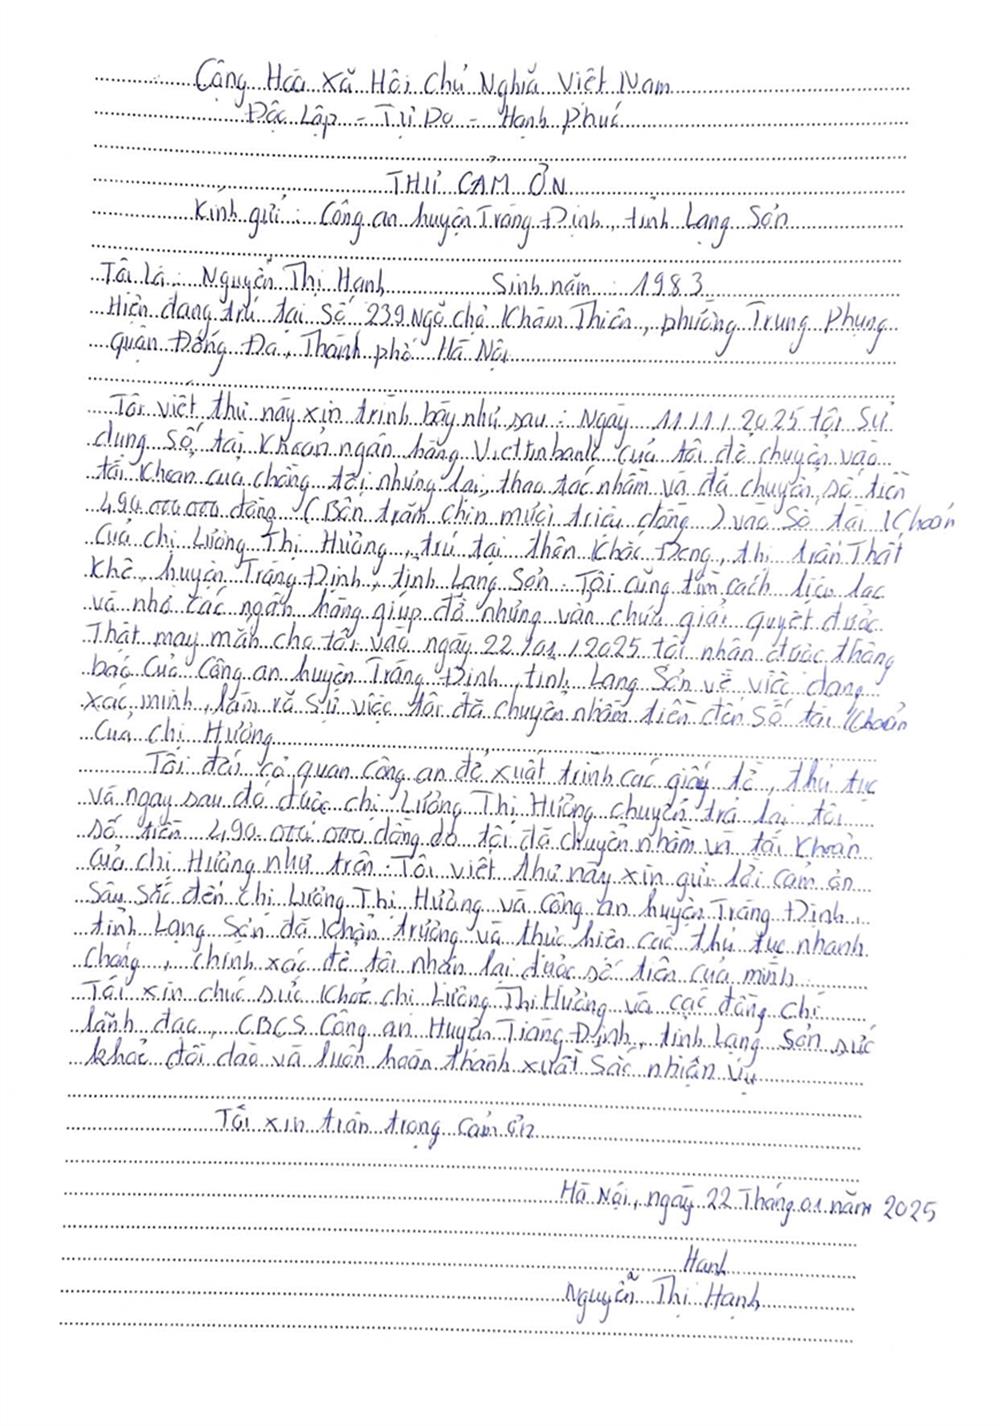 Cộng Hòa Xã Hội Chủ Nghĩa Việt Nam
Độc Lập - Tự Do - Hạnh Phúc
THƯ CẢM ƠN
Kính gửi: Công an huyện Tràng Định, tỉnh Lạng Sơn
Tôi là: Nguyễn Thị Hạnh Sinh năm: 1983
Hiện đang trú tại Số 239 Ngõ chợ Khâm Thiên, phường Trung Phụng
quận Đống Đa, Thành phố Hà Nội
Tôi viết thư này xin trình bày như sau: Ngày 11/11/2025 tôi Sử
dụng Số tài Khoản ngân hàng Viettinbank của tôi để chuyển vào
tài Khoản của chồng tôi nhưng lại thao tác nhầm và đã chuyển số tiền
490.000.000 đồng (Bốn trăm chín mươi triệu đồng) vào Số tài Khoản
Của chị Lương Thị Hường, trú tại thôn Khắc Đeng, thị trấn Thất
Khê, huyện Tràng Định, tỉnh Lạng Sơn. Tôi cũng tìm cách liên lạc
và nhờ các ngân hàng giúp đỡ nhưng vẫn chưa giải quyết được.
Thật may mắn cho tôi vào ngày 22/01/2025 tôi nhận được thông
báo Của Công an huyện Tràng Định, tỉnh Lạng Sơn về việc đang
xác minh, làm rõ Sự việc tôi đã chuyển nhầm tiền đến Số tài Khoản
Của chị Hường
Tôi đến cơ quan Công an để xuất trình các giấy tờ, thủ tục
và ngay sau đó được chị Lương Thị Hường chuyển trả lại tôi
số tiền 490.000.000 đồng do tôi đã chuyển nhầm và tài Khoản
của chị Hường như trên. Tôi viết thư này xin gửi lời cảm ơn
Sâu Sắc đến chị Lương Thị Hường và Công an huyện Tràng Định,
tỉnh Lạng Sơn đã khẩn trương và thực hiện các thủ tục nhanh
Chóng, chính xác để tôi nhận lại được số tiền của mình.
Tôi xin chúc sức Khỏe chị Lương Thị Hường và các đồng chí
lãnh đạo, CBCS Công an Huyện Tràng Định, tỉnh Lạng Sơn sức
khỏe dồi dào và luôn hoàn thành xuất Sắc nhiệm vụ
Tôi xin trân trọng cảm ơn
Hà Nội, ngày 22 Tháng 01 năm 2025
Hạnh
Nguyễn Thị Hạnh